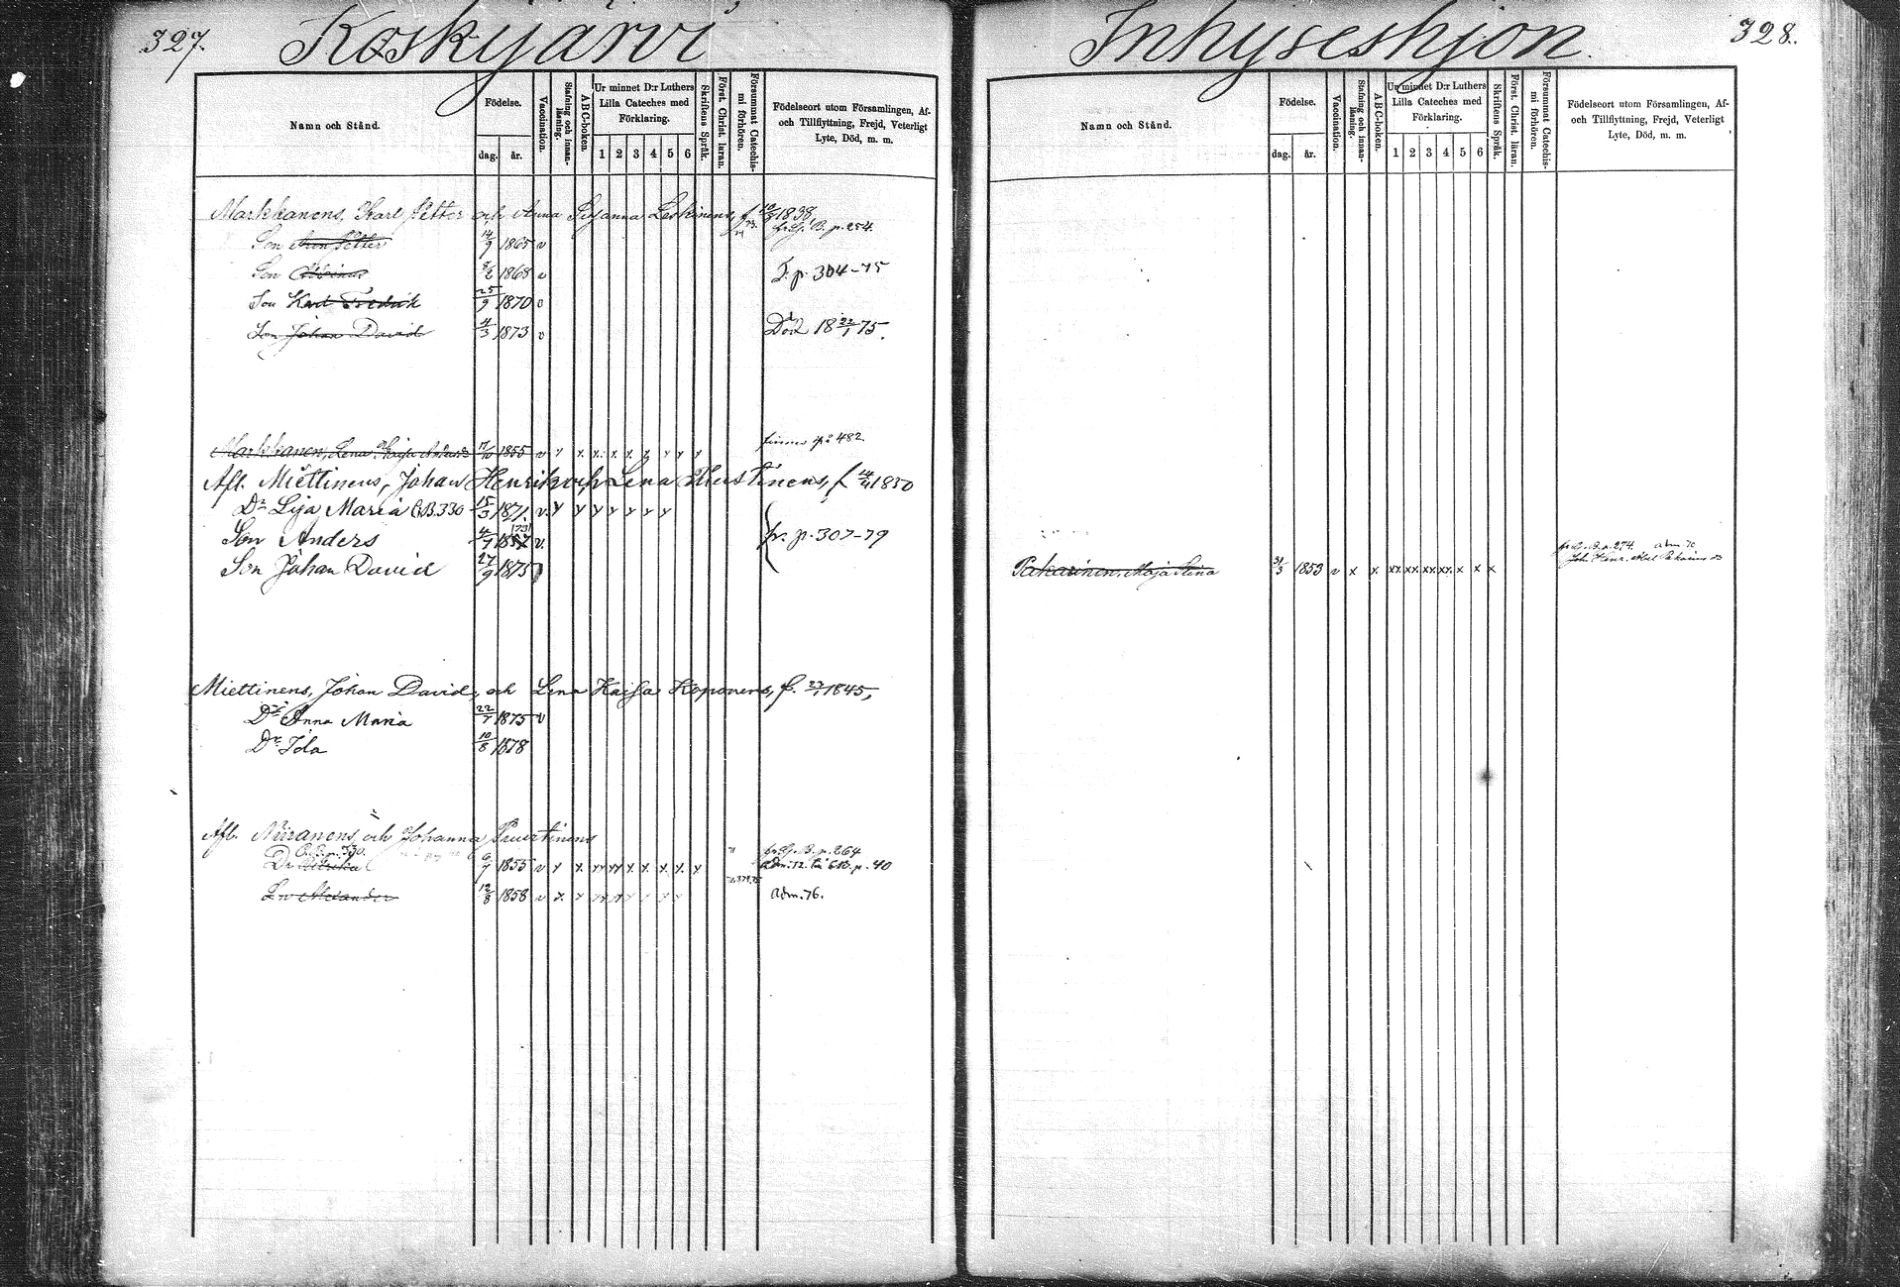 327.
Koskijärvi
Namn och Stånd.
Födelse.
dag.
år.
Vaccination.
Stafning och innan-läsning.
ABC-boken.
Ur minnet D:r Luthers
Lilla Cateches med
Förklaring.
1 2 3 4 5 6
Skriftens Språk.
Först. Christ. läran.
Försummat Catechis-mi förhören.
Födelseort utom Församlingen, Af-
och Tillflyttning, Frejd, Veterligt
Lyte, Död, m. m.
Markkanens, Karl Petter och Anna Susanna Leskinens, f 1838,
Son Petter 14/9 1865 v p. 254.
Son 1868 v T. p. 304-75
Son Karl Fredrik 25/9 1870 v
Son Johan David 4/3 1873 v Död 18 22/1 75.
Markkanen, Lena Kaisa 17/10 1855 v x x x x x x x x x finnes på 482
Afl. Miettinens, Johan Henrik och Lena Mustinens, f 1830
Dr Lisa Maria C.B. 330 15/3 1871. v. x x x x x x x
Son Anders 4/7 v. fr. p. 307-79
Son Johan David 27/9 1875
Miettinens, Johan David, och Lena Kaisa Koponens, f. 1845,
Dr Anna Maria 22/7 1875 v
Dr Ida 10/8 1878
Afl. Niiranens och Johanna
p. 330. p. 264
Dr Ulrika 6/9 1855 v x x xx xx x x x x x adm. 72. p. 40
Son Alexander 12/8 1858 v x x xx xx x x x x adm. 76.
328.
Inhyseshjon
Namn och Stånd.
Födelse.
dag.
år.
Vaccination.
Stafning och innan-läsning.
ABC-boken.
Ur minnet D:r Luthers
Lilla Cateches med
Förklaring.
1 2 3 4 5 6
Skriftens Språk.
Först. Christ. läran.
Försummat Catechis-mi förhören.
Födelseort utom Församlingen, Af-
och Tillflyttning, Frejd, Veterligt
Lyte, Död, m. m.
p. 274. adm. 70
Pakarinen, Maja Stina 31/3 1853 v x x xx xx xx xx x x x Joh. Henr.